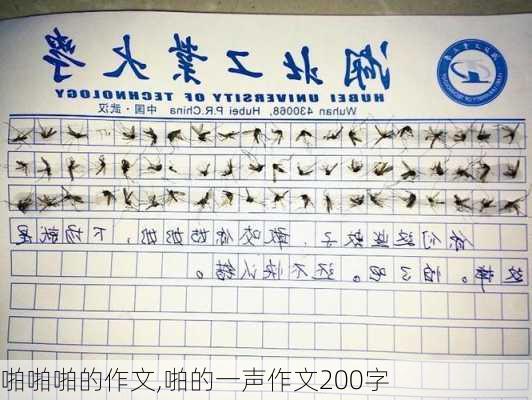 湖北工业大学
HUBEI UNIVERSITY OF TECHNOLOGY
中国·武汉
Wuhan 430068, Hubei P.R.China
你们这些蚊子，敢咬，下场就是
这样。怕了吧。还不快认错。
啪啪啪的作文,啪的一声作文200字